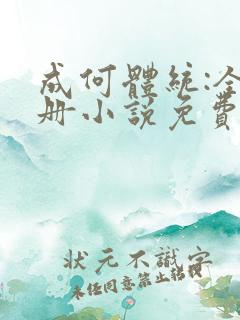 成何體統:全
册小說免費
状元不識字
未任同意禁止轉載